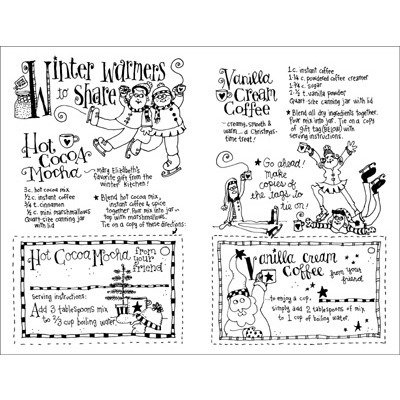 Winter Warmers
to Share
Hot
Cocoa
Mocha
~ Mary Elizabeth's
favorite gift from the
Winter Kitchen!
3c. hot cocoa mix
1/2 c. instant coffee
3/4 t. cinnamon
1/2 c. mini marshmallows
Quart-size canning jar
with lid
★ Blend hot cocoa mix,
instant coffee & spice
together. Pour mix into jar
~ top with marshmallows.
Tie on a copy of these directions:
Hot Cocoa Mocha from
your
friend
Serving instructions:
Add 3 tablespoons mix
to 2/3 cup boiling water.
Vanilla
Cream
Coffee
~ creamy, smooth &
warm... a Christmas-
time treat!
1 c. instant coffee
1-1/4 c. powdered coffee creamer
1-3/4 c. sugar
2-1/2 t. vanilla powder
Quart-size canning jar with lid
★ Blend all dry ingredients together.
Pour mix into jar. Tie on a copy
of gift tag (below) with
serving directions.
★ Go ahead!
make
copies of
the tags to
tie on!
Vanilla Cream
Coffee from your
friend
to enjoy a cup,
simply add 2 tablespoons of mix
to 1 cup of boiling water.